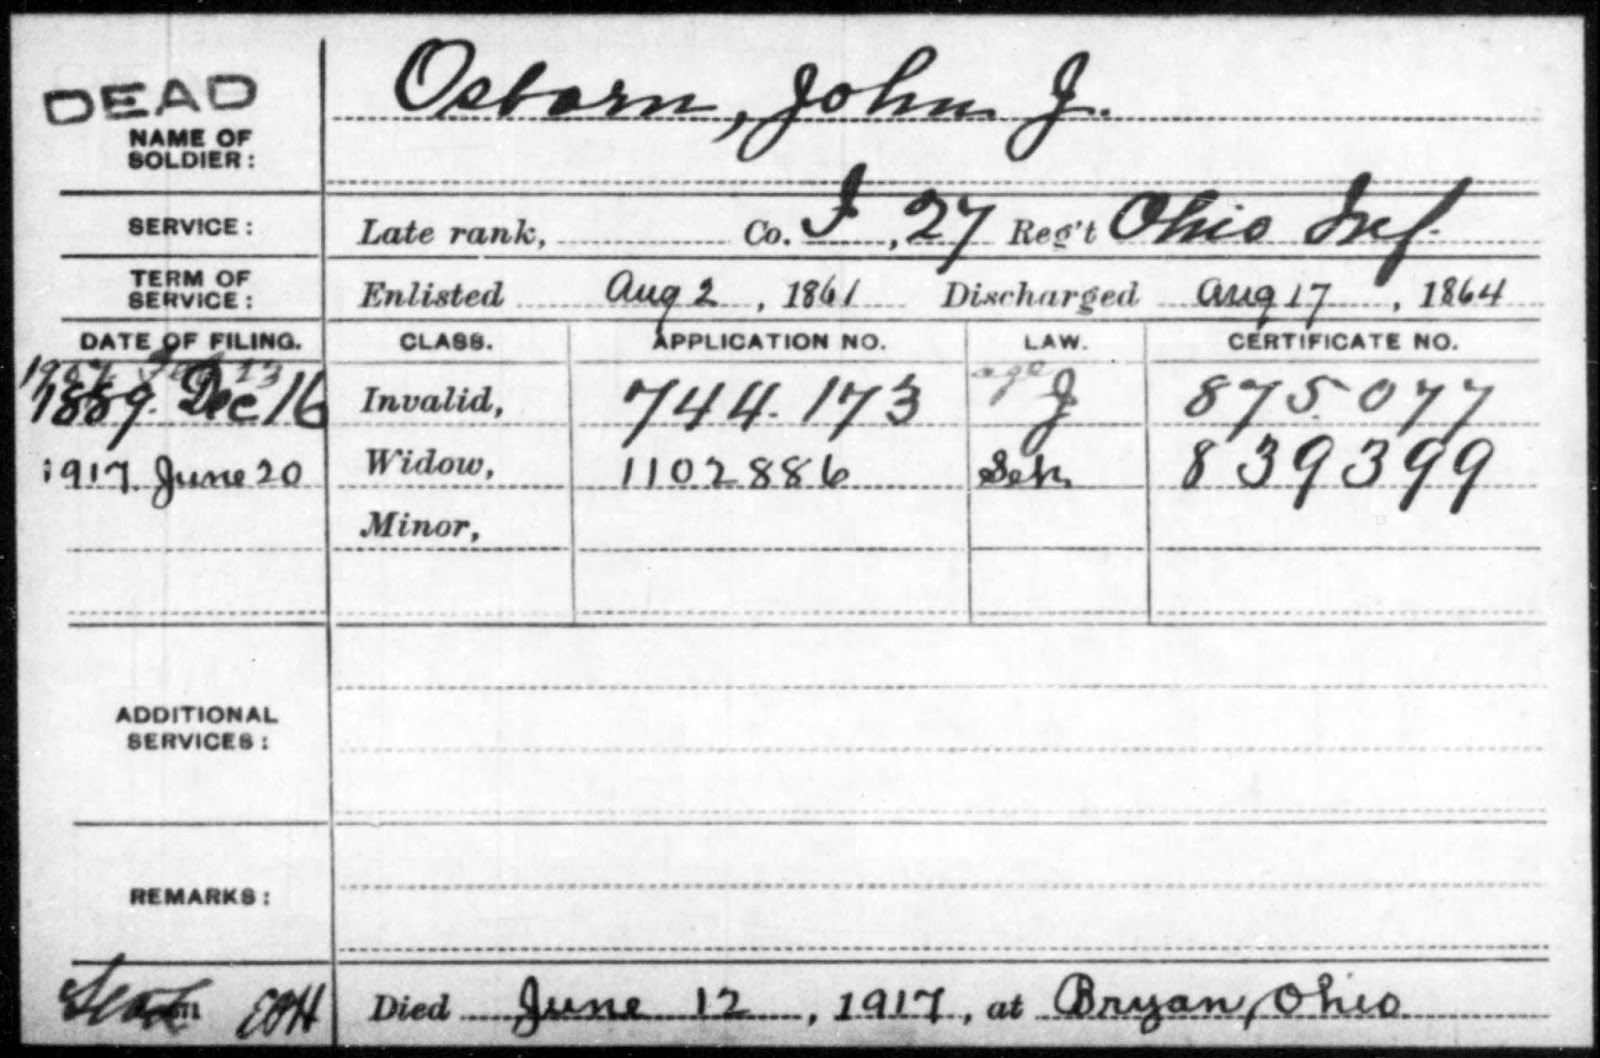 DEAD
NAME OF SOLDIER: Osborn, John J.
SERVICE: Late rank, Co. I, 27 Reg't Ohio Inf.
TERM OF SERVICE: Enlisted Aug 2, 1861 Discharged Aug 17, 1864
DATE OF FILING. CLASS. APPLICATION NO. LAW. CERTIFICATE NO.
age
1889. Dec 16 Invalid, 744.173 J 875.077
1917 June 20 Widow, 1102886 839399
Minor,
ADDITIONAL SERVICES:
REMARKS:
Died June 12, 1917, at Bryan, Ohio